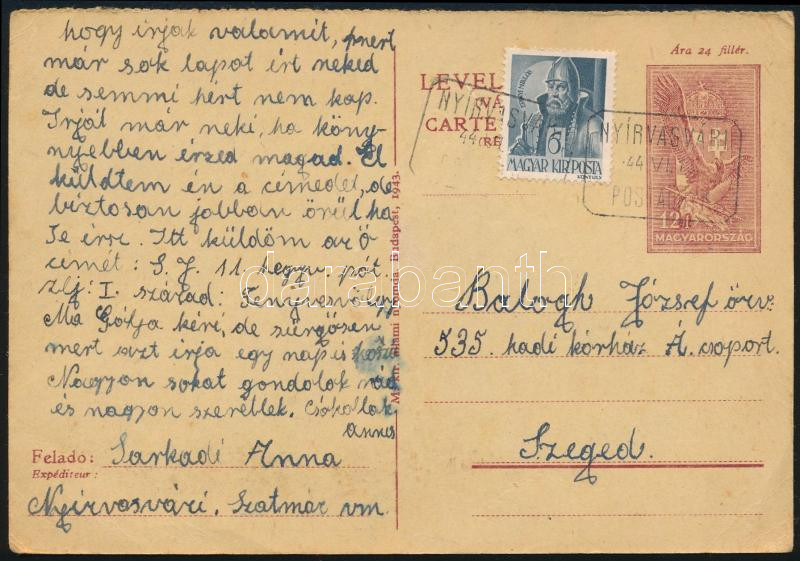 hogy irjak valamit, mert
már sok lapot irt neked
de semmi hert nem kap.
Irjál már neki, ha köny-
nyebben érzed magad. El
küldtem én a címedet, de
biztosan jobban örül ha
Te irsz. Itt küldöm az ő
címét: S. J. 11. hegyv. pót.
zlj: I. század: Fenyvesvölgy
Ma Gólja kéri, de sürgősen
mert azt irja egy nap is
Nagyon sokat gondolok rád
és nagyon szeretlek. Csókollak
Annus
Feladó: Sarkadi Anna
Expéditeur:
Nyírvasvári. Szatmár vm.
M. kir. állami nyomda. Budapest, 1943.
Ára 24 fillér.
LEVEL
CARTE
NYÍRVASVÁRI
44
6
MAGYAR KIR. POSTA
NYÍRVASVÁRI
44 VI
POSTA
12
MAGYARORSZÁG
Balogh József őrv.
535. hadi kórház Á. csoport.
Szeged.
darabanth